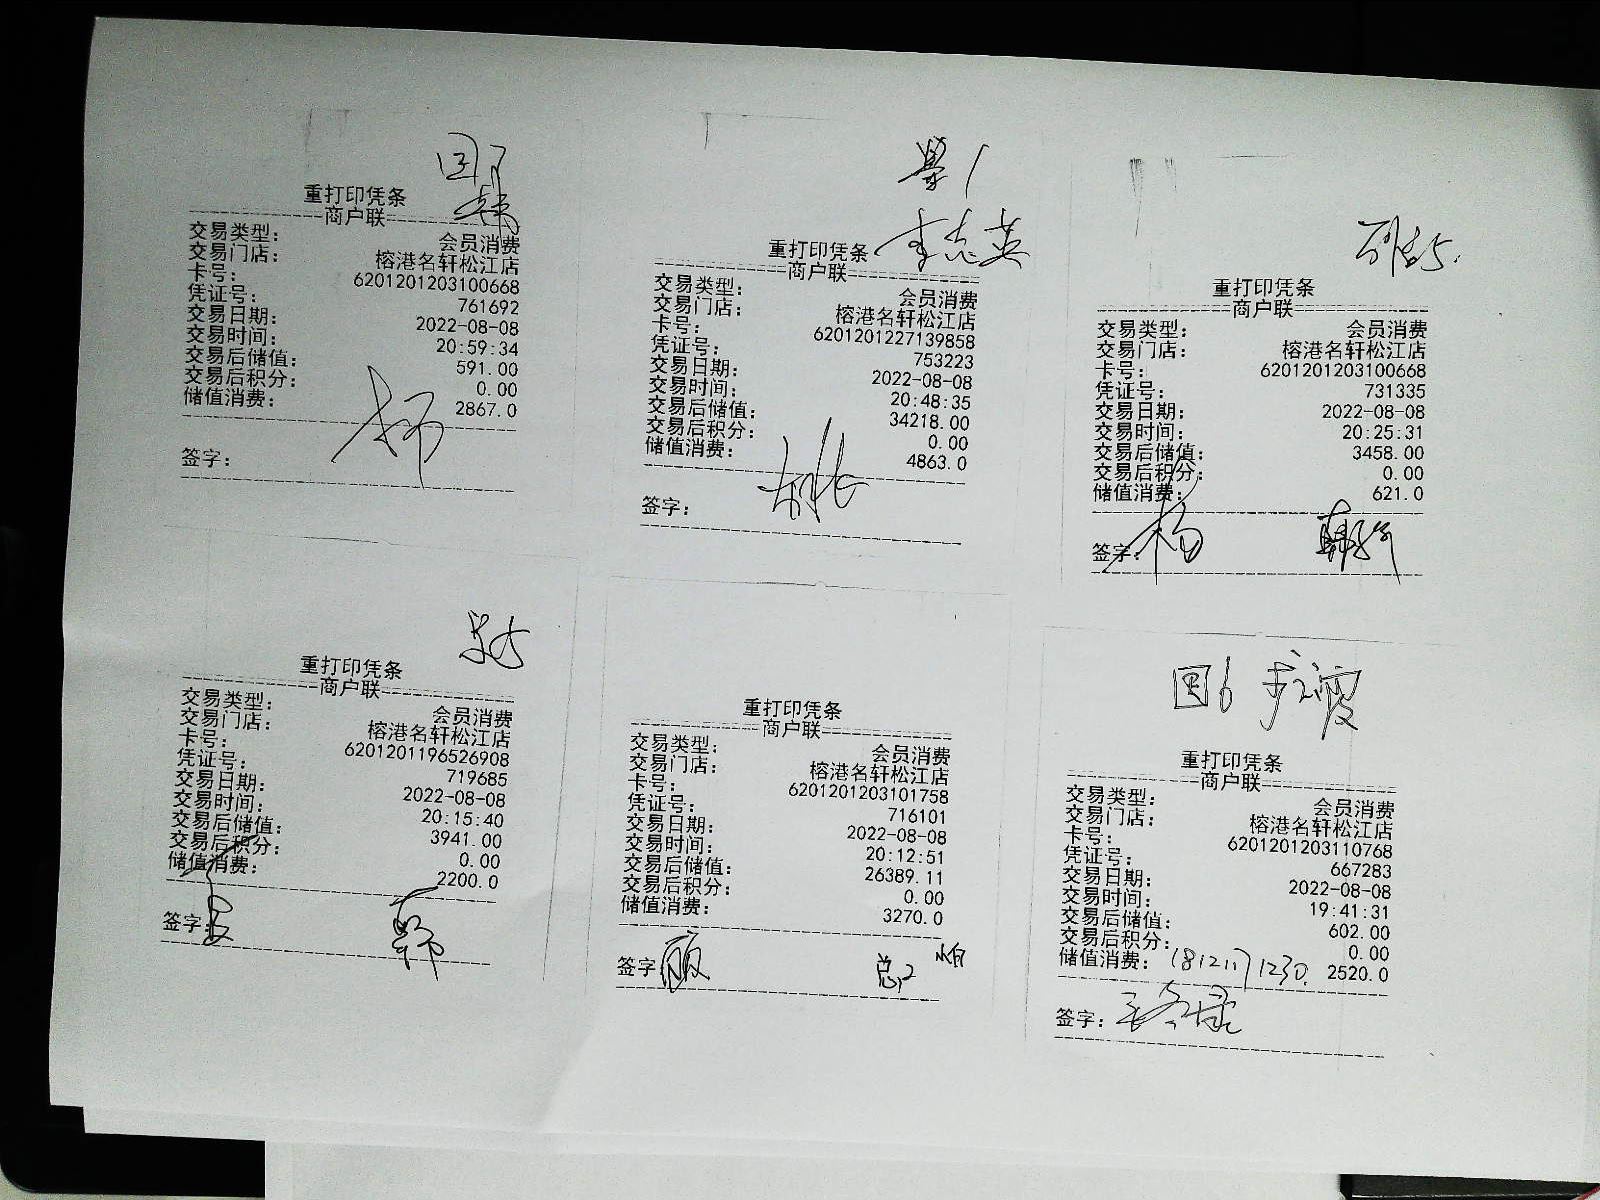 重打印凭条
商户联
交易类型： 会员消费
交易门店： 榕港名轩松江店
卡号： 6201201203100668
凭证号： 761692
交易日期： 2022-08-08
交易时间： 20:59:34
交易后储值： 591.00
交易后积分： 0.00
储值消费： 2867.0
签字：
李志英
重打印凭条
商户联
交易类型： 会员消费
交易门店： 榕港名轩松江店
卡号： 6201201227139858
凭证号： 753223
交易日期： 2022-08-08
交易时间： 20:48:35
交易后储值： 34218.00
交易后积分： 0.00
储值消费： 4863.0
签字：
重打印凭条
商户联
交易类型： 会员消费
交易门店： 榕港名轩松江店
卡号： 6201201203100668
凭证号： 731335
交易日期： 2022-08-08
交易时间： 20:25:31
交易后储值： 3458.00
交易后积分： 0.00
储值消费： 621.0
签字： 杨
重打印凭条
商户联
交易类型： 会员消费
交易门店： 榕港名轩松江店
卡号： 6201201196526908
凭证号： 719685
交易日期： 2022-08-08
交易时间： 20:15:40
交易后储值： 3941.00
交易后积分： 0.00
储值消费： 2200.0
签字：
重打印凭条
商户联
交易类型： 会员消费
交易门店： 榕港名轩松江店
卡号： 6201201203101758
凭证号： 716101
交易日期： 2022-08-08
交易时间： 20:12:51
交易后储值： 26389.11
交易后积分： 0.00
储值消费： 3270.0
签字： 丽 总2
国6
重打印凭条
商户联
交易类型： 会员消费
交易门店： 榕港名轩松江店
卡号： 6201201203110768
凭证号： 667283
交易日期： 2022-08-08
交易时间： 19:41:31
交易后储值： 602.00
交易后积分： 0.00
储值消费： 18121171230. 2520.0
签字：